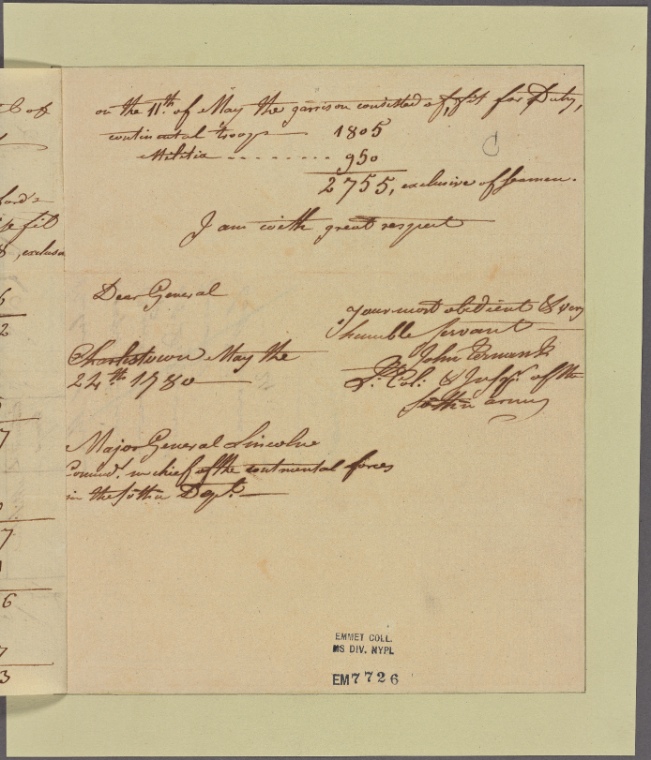 on the 11th of May the garrison consisted of, fit for Duty,
continental troops 1805
Militia - - - - - - - - 950
2755, exclusive of seamen.
I am with great respect
Dear General
your most obedient & very
humble servant
John Ternant
Lt. Col: & Inspr. of the
sothn army
Charlestown May the
24th 1780
Major General Lincolne
Comandt. in chief of the continental forces
in the sothn Dept.
C
, exclusive
6
2
7
7
6
7
3
EMMET COLL.
MS DIV. NYPL
EM7726